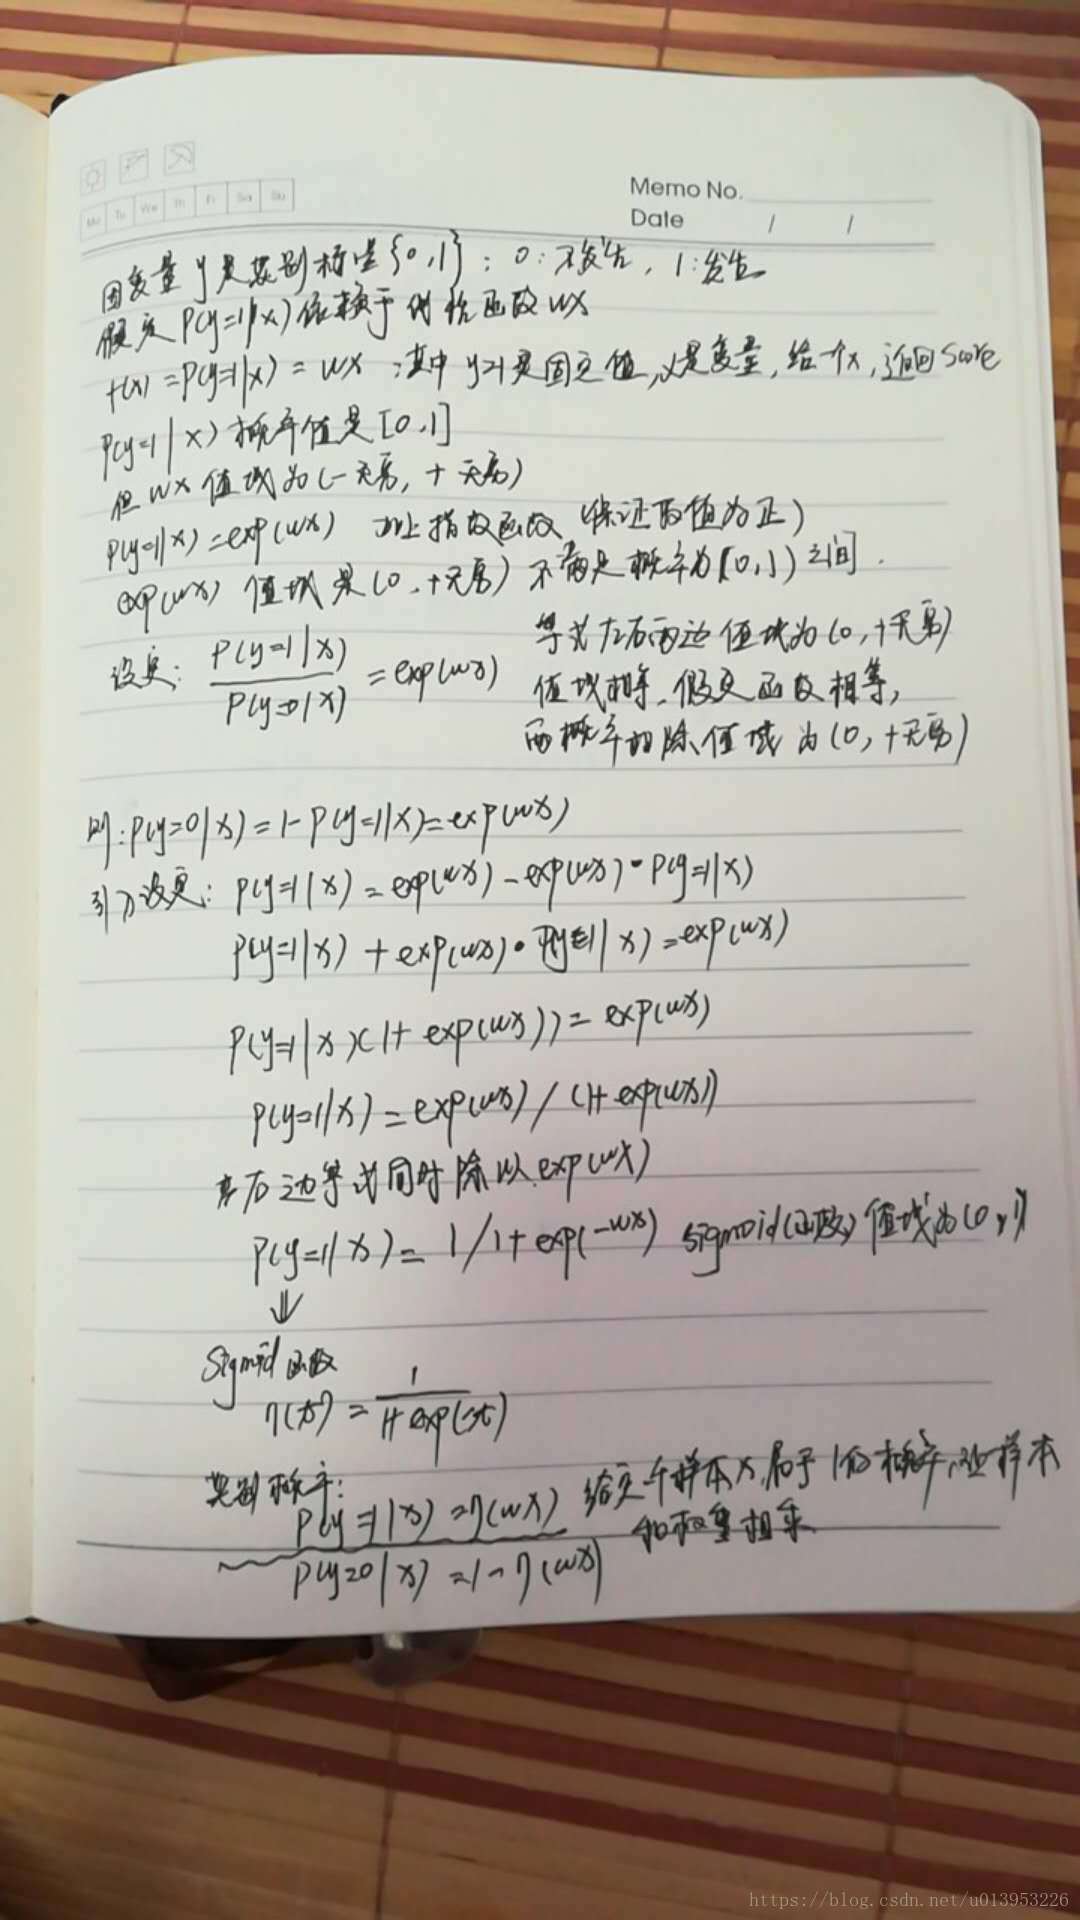 Memo No.
Date / /
Mo Tu We Th Fr Sa Su
因变量 y是类别标签{0,1}; 0:不发生, 1:发生
假定 P(y=1|x)依赖于线性函数wx
f(x)=P(y=1|x)=wx ;其中 y=1是固定值,x是变量,给一个x,返回Score
P(y=1|x) 概率值是[0,1]
但wx 值域为(-无穷,+无穷)
P(y=1|x)=exp(wx) 加上指数函数 (保证取值为正)
exp(wx) 值域是(0,+无穷) 不满足概率为[0,1)之间.
设定: P(y=1|x) / P(y=0|x) = exp(wx)
等式左右两边值域为(0,+无穷)
值域相等,假定函数相等,
两概率相除值域为(0,+无穷)
则:P(y=0|x)=1-P(y=1|x)=exp(wx)
引入设定: P(y=1|x)=exp(wx)-exp(wx)·P(y=1|x)
P(y=1|x)+exp(wx)·P(y=1|x)=exp(wx)
P(y=1|x)(1+exp(wx))=exp(wx)
P(y=1|x)=exp(wx)/(1+exp(wx))
右边等式同时除以exp(wx)
P(y=1|x)=1/1+exp(-wx) sigmoid(函数)值域为(0,1)
⇓
Sigmoid函数
η(t)=1/1+exp(-t)
类别概率:
P(y=1|x)=η(wx) 给定一个样本x,属于1的概率,让样本
和权重相乘
P(y=0|x)=1-η(wx)
https://blog.csdn.net/u013953226